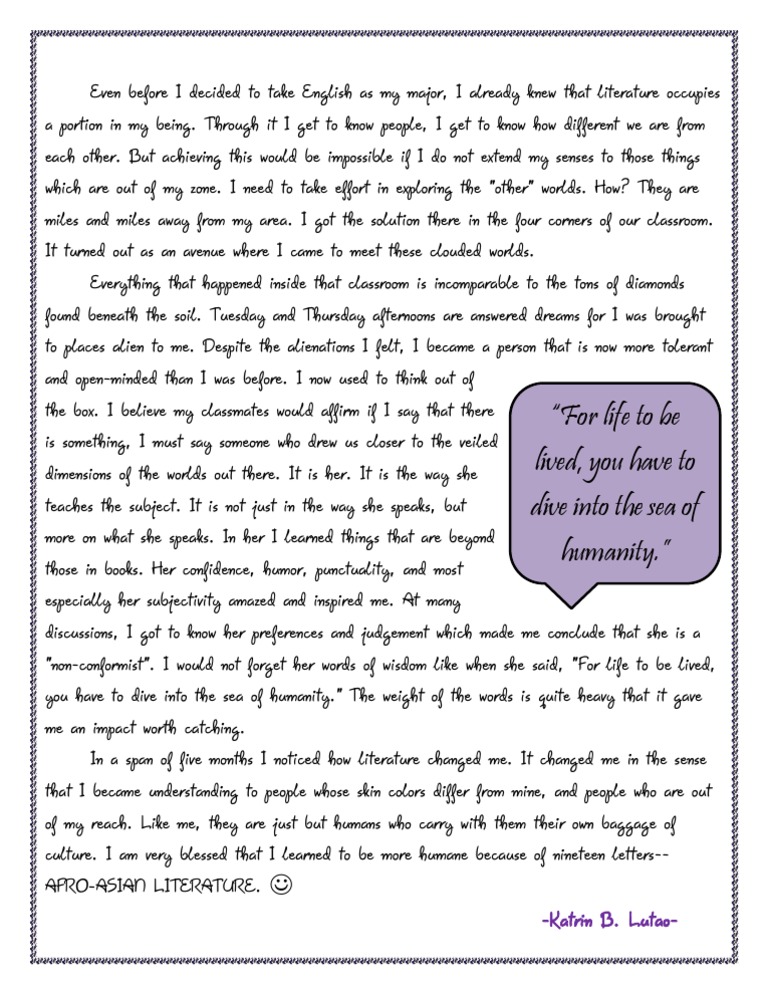 Even before I decided to take English as my major, I already knew that literature occupies
a portion in my being. Through it I get to know people, I get to know how different we are from
each other. But achieving this would be impossible if I do not extend my senses to those things
which are out of my zone. I need to take effort in exploring the "other" worlds. How? They are
miles and miles away from my area. I got the solution there in the four corners of our classroom.
It turned out as an avenue where I came to meet these clouded worlds.
Everything that happened inside that classroom is incomparable to the tons of diamonds
found beneath the soil. Tuesday and Thursday afternoons are answered dreams for I was brought
to places alien to me. Despite the alienations I felt, I became a person that is now more tolerant
and open-minded than I was before. I now used to think out of
the box. I believe my classmates would affirm if I say that there
is something, I must say someone who drew us closer to the veiled
dimensions of the worlds out there. It is her. It is the way she
teaches the subject. It is not just in the way she speaks, but
more on what she speaks. In her I learned things that are beyond
those in books. Her confidence, humor, punctuality, and most
especially her subjectivity amazed and inspired me. At many
discussions, I got to know her preferences and judgement which made me conclude that she is a
"non-conformist". I would not forget her words of wisdom like when she said, "For life to be lived,
you have to dive into the sea of humanity." The weight of the words is quite heavy that it gave
me an impact worth catching.
"For life to be
lived, you have to
dive into the sea of
humanity."
In a span of five months I noticed how literature changed me. It changed me in the sense
that I became understanding to people whose skin colors differ from mine, and people who are out
of my reach. Like me, they are just but humans who carry with them their own baggage of
culture. I am very blessed that I learned to be more humane because of nineteen letters--
AFRO-ASIAN LITERATURE. ☺
-Katrin B. Lutao-